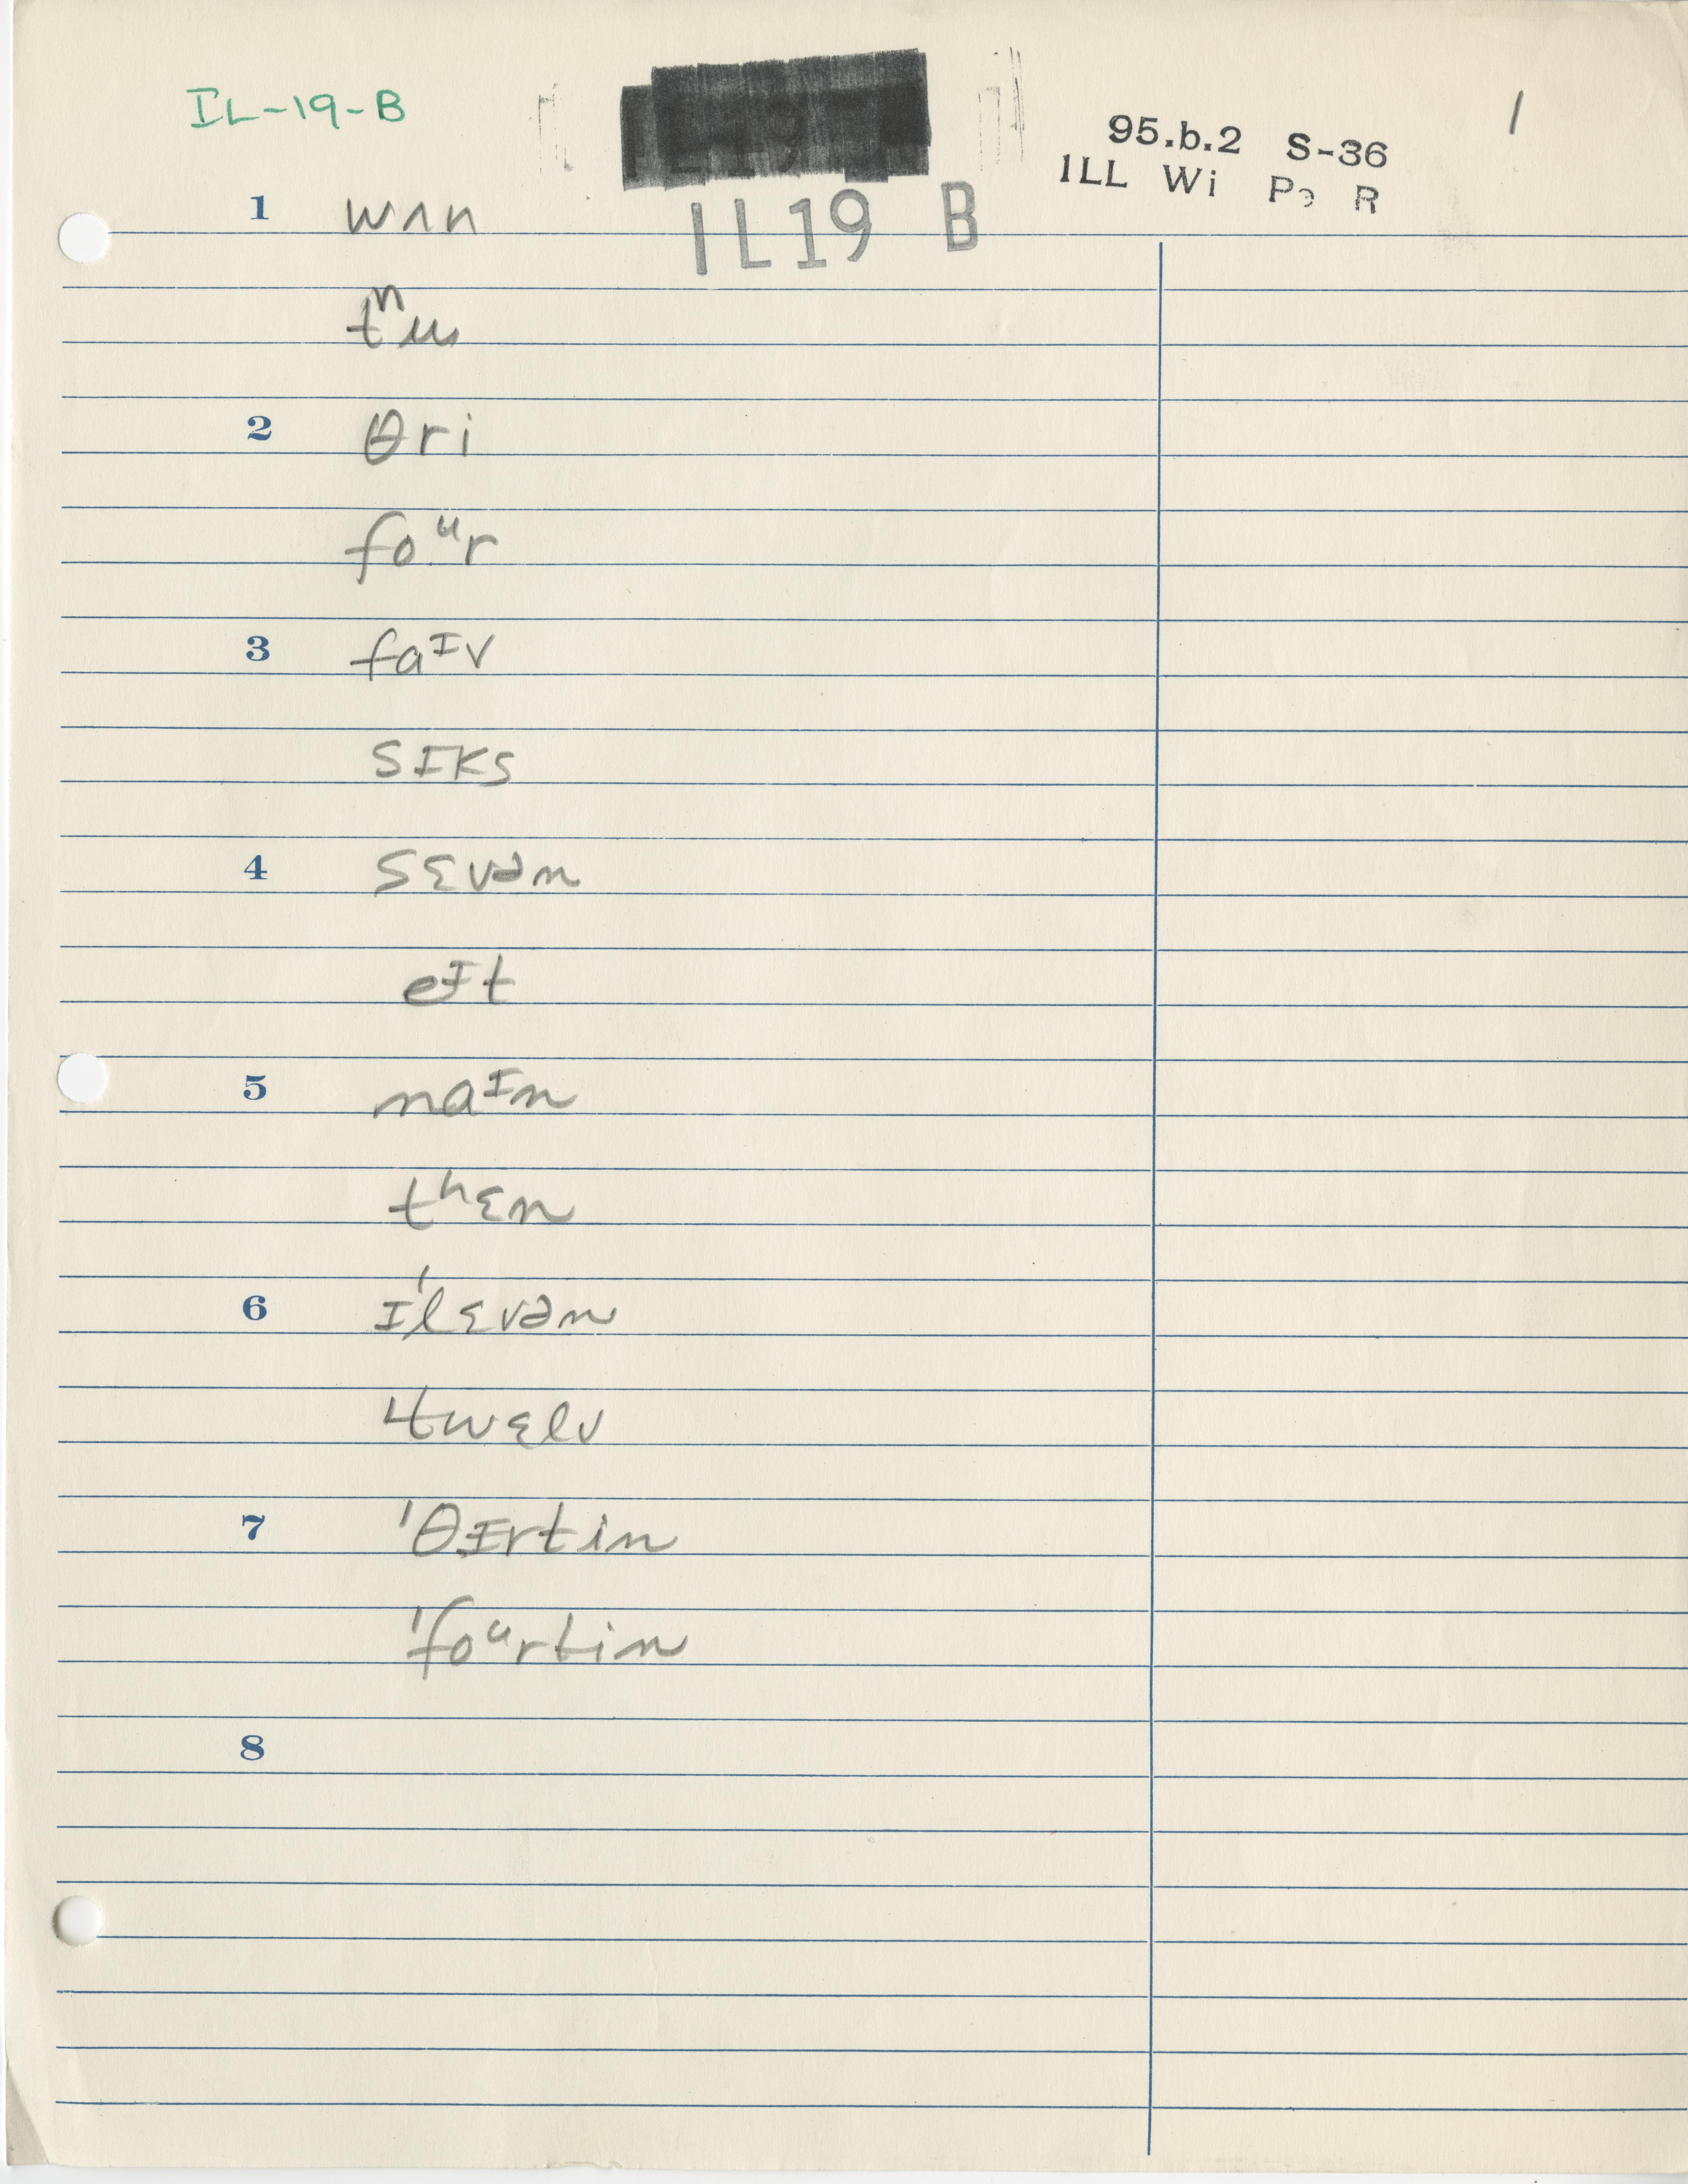 IL-19-B
95.b.2 S-36
1
ILL Wi Pɔ R
IL19 B
1 wʌn
tʰu
2 θri
foᵘr
3 faᶦv
sɪks
4 sɛvən
eᶦt
5 naᶦn
tʰɛn
6 ɪˈlɛvən
twɛlv
7 ˈθɪrtin
ˈfoᵘrtin
8